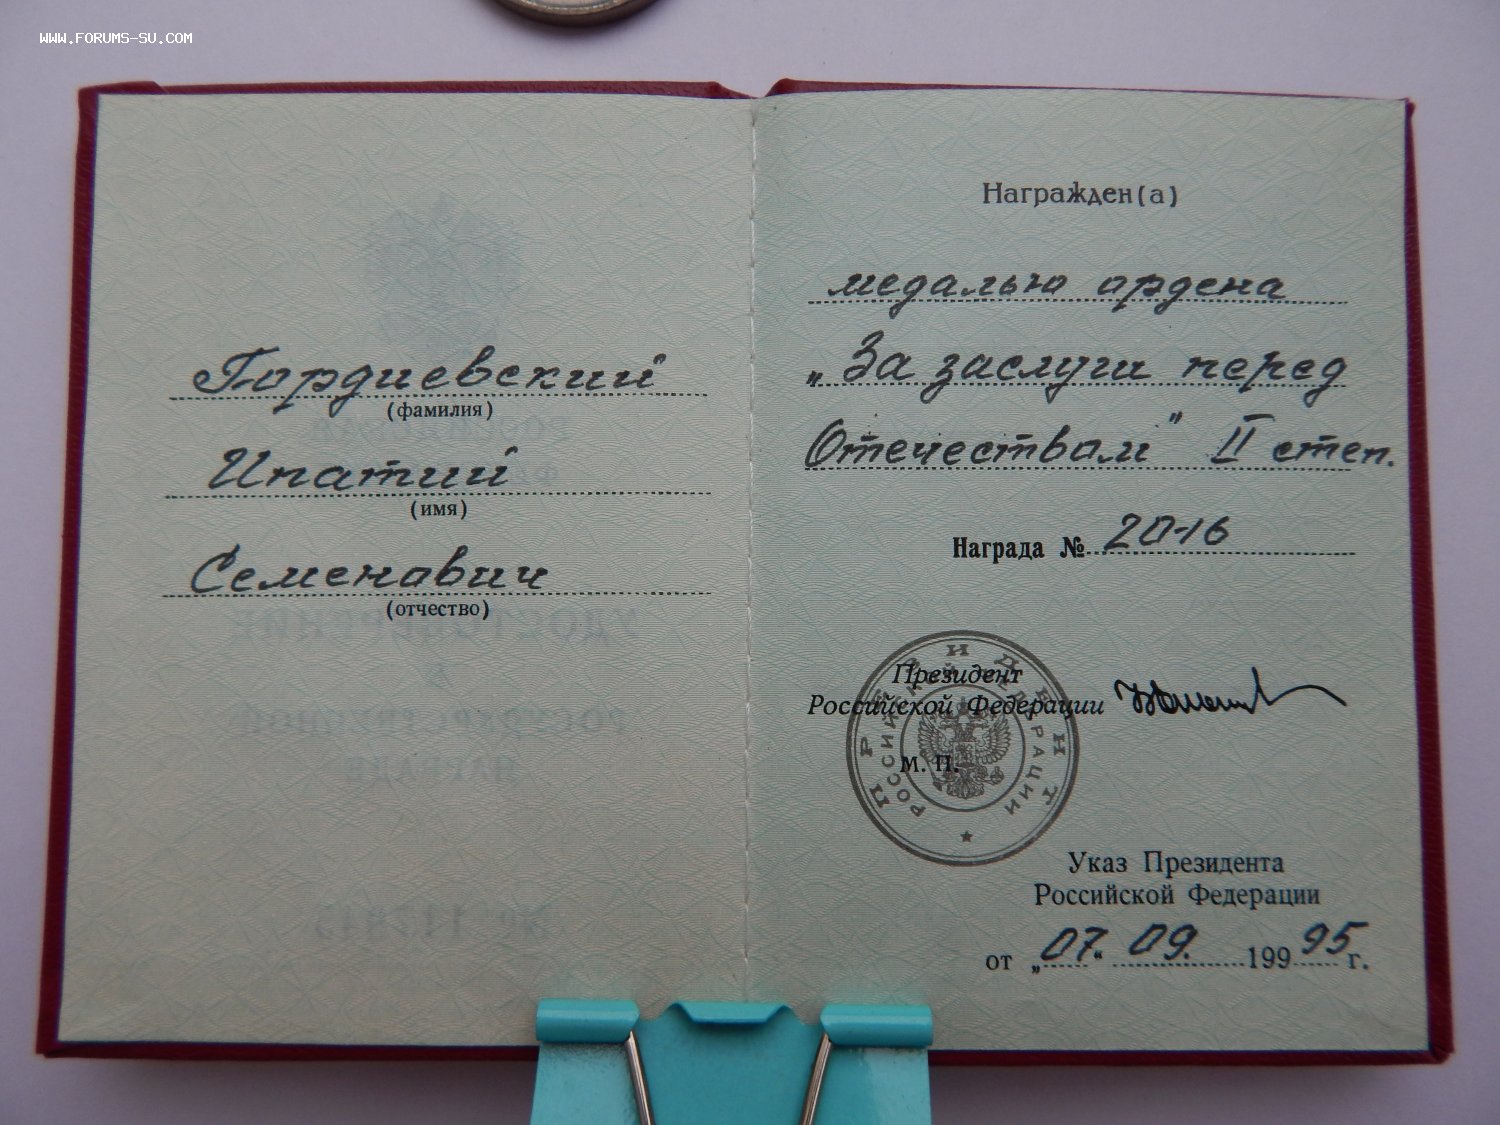 WWW.FORUMS-SU.COM
Гордиевский
(фамилия)
Ипатий
(имя)
Семенович
(отчество)
Награжден(а)
медалью ордена
„За заслуги перед
Отечеством" II степ.
Награда № 2016
Президент
Российской Федерации
М. П.
ПРЕЗИДЕНТ
РОССИЙСКОЙ ФЕДЕРАЦИИ
Указ Президента
Российской Федерации
от „07." 09. 199 95 г.